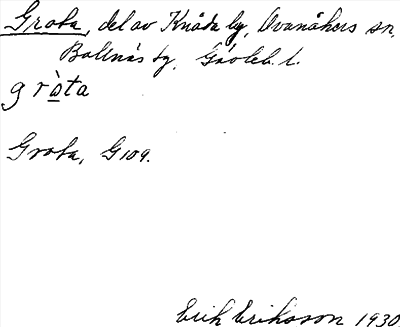 Grota, del av Knåda by, Ovanåkers sn.
Bollnäs tg. Gävleb. l.
gròta
Grota, G109.
Erik Eriksson 1930